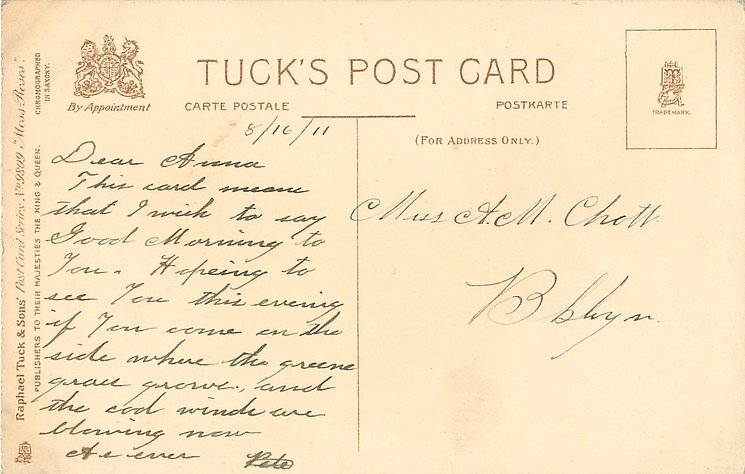 TUCK'S POST CARD
By Appointment
CARTE POSTALE
POSTKARTE
(FOR ADDRESS ONLY.)
TRADE MARK.
CHROMOGRAPHED
IN SAXONY.
Raphael Tuck & Sons' Post Card Series No 9809 "Moss Roses".
PUBLISHERS TO THEIR MAJESTIES THE KING & QUEEN.
8/16/11
Dear Anna
This card means
that I wish to say
Good Morning to
You. Hopeing to
see You this evening
if You come on the
side where the greene
grass grows, and
the cool winds are
blowing now
As ever Pete
Miss A.M. Chott
Bklyn.